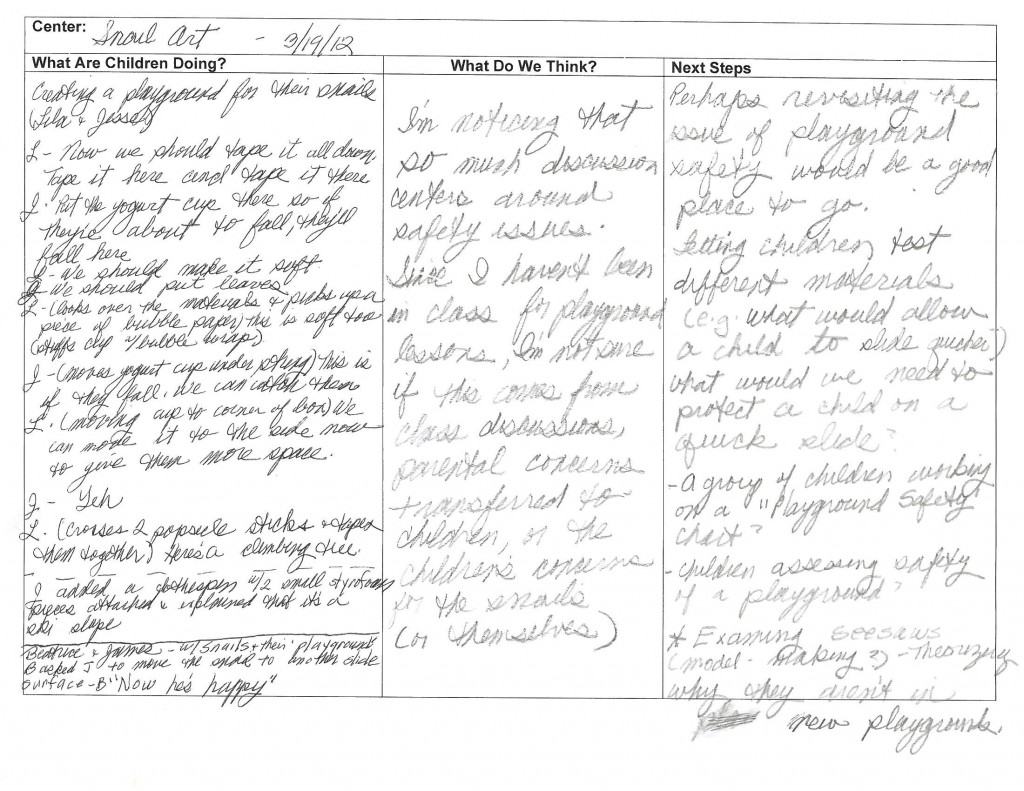 Center: Snail Art - 3/19/12
What Are Children Doing?
Creating a playground for their snails
(Lila & Jessely)
L - Now we should tape it all down
Tape it here and tape it there
J. Put the yogurt cup there so if
they're about to fall, they'll
fall here
J - We should make it soft
J - We should put leaves
L - (looks over the materials & picks up a
piece of bubble paper) this is soft too
(stuffs cup w/bubble wrap)
J - (moves yogurt cup under string) this is
if they fall. We can catch them
L. (moving cup to corner of box) We
can move it to the side now
to give them more space.
J. - Yeh
L. (crosses 2 popsicle sticks & tapes
them together) Here's a climbing tree.
J added a clothespin w/2 small styrofoam
pieces attached & explained that it's a
ski slope
Beatrice & James - w/ snails & their playground
B asked J to move the snail to another slide
surface - B "Now he's happy"
What Do We Think?
I'm noticing that
so much discussion
centers around
safety issues.
Since I haven't been
in class for playground
lessons, I'm not sure
if this comes from
class discussions,
parental concerns
transferred to
children, or the
children's concerns
for the snails
(or themselves)
Next Steps
Perhaps revisiting the
issue of playground
safety would be a good
place to go.
Letting children test
different materials
(e.g. what would allow
a child to slide quicker)
what would we need to
protect a child on a
quick slide?
- A group of children working
on a "Playground Safety
chart"?
- Children assessing safety
of a playground?
* Examing seesaws
(model-making?) - Theorizing
why they aren't in
new playgrounds.